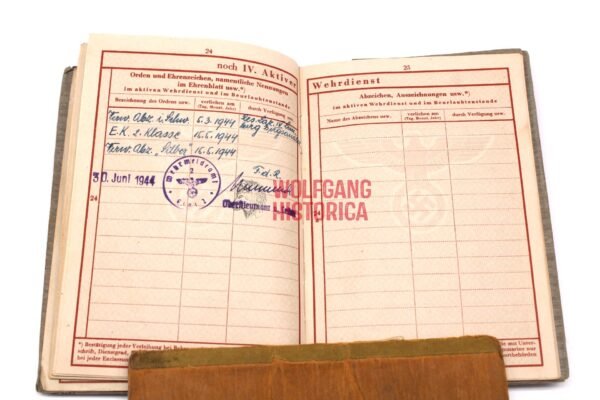 24
noch IV. Aktiver
Orden und Ehrenzeichen, namentliche Nennungen
im Ehrenblatt usw.*)
im aktiven Wehrdienst und im Beurlaubtenstande
Bezeichnung des Ordens usw.
verliehen am
(Tag, Monat, Jahr)
durch Verfügung usw.
Verw. Abz. i. Schw. 6.3.1944
E.K. 2. Klasse 16.6.1944
Verw. Abz. "Silber" 16.6.1944
30. Juni 1944
Wehrmeldeamt
2
F.d.R.
24
*) Bestätigung jeder Verleihung bei
25
Wehrdienst
Abzeichen, Auszeichnungen usw.*)
im aktiven Wehrdienst und im Beurlaubtenstande
Name des Abzeichens usw.
verliehen am
(Tag, Monat, Jahr)
durch Verfügung usw.
24
WOLFGANG
HISTORICA